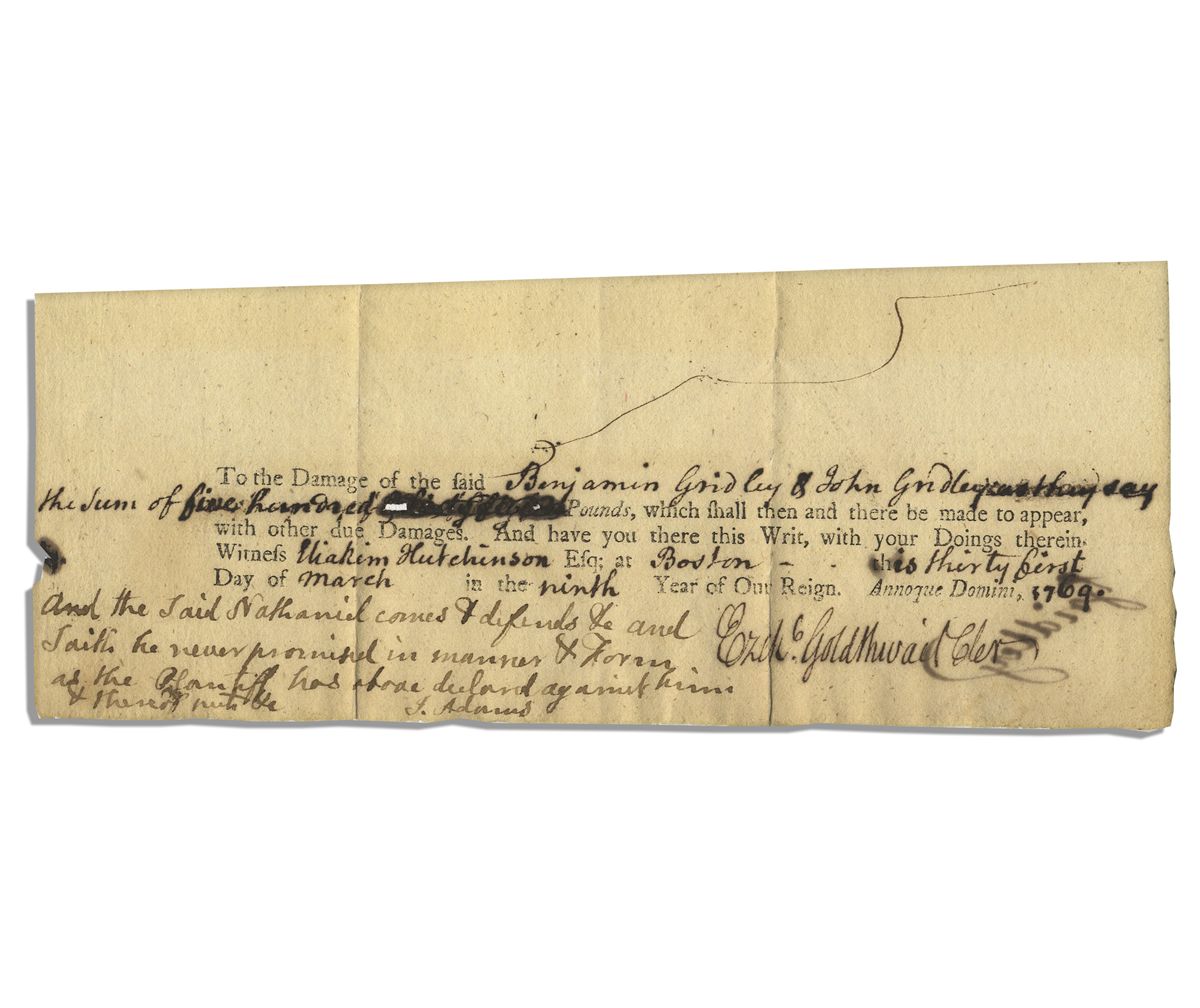 To the Damage of the ſaid Benjamin Gridley & John Gridley as they say
the Sum of five hundred Pounds, which ſhall then and there be made to appear,
with other due Damages. And have you there this Writ, with your Doings therein.
Witneſs Eliakim Hutchinson Eſq; at Boston - - this thirty first
Day of March in the ninth Year of Our Reign. Annoque Domini, 1769.
And the Said Nathaniel comes & defends &c and
Saith he never promised in manner & Form
as the Plantiff has above declard against him
& thereof puts &c J. Adams
Ezekl. Goldthwait Cler